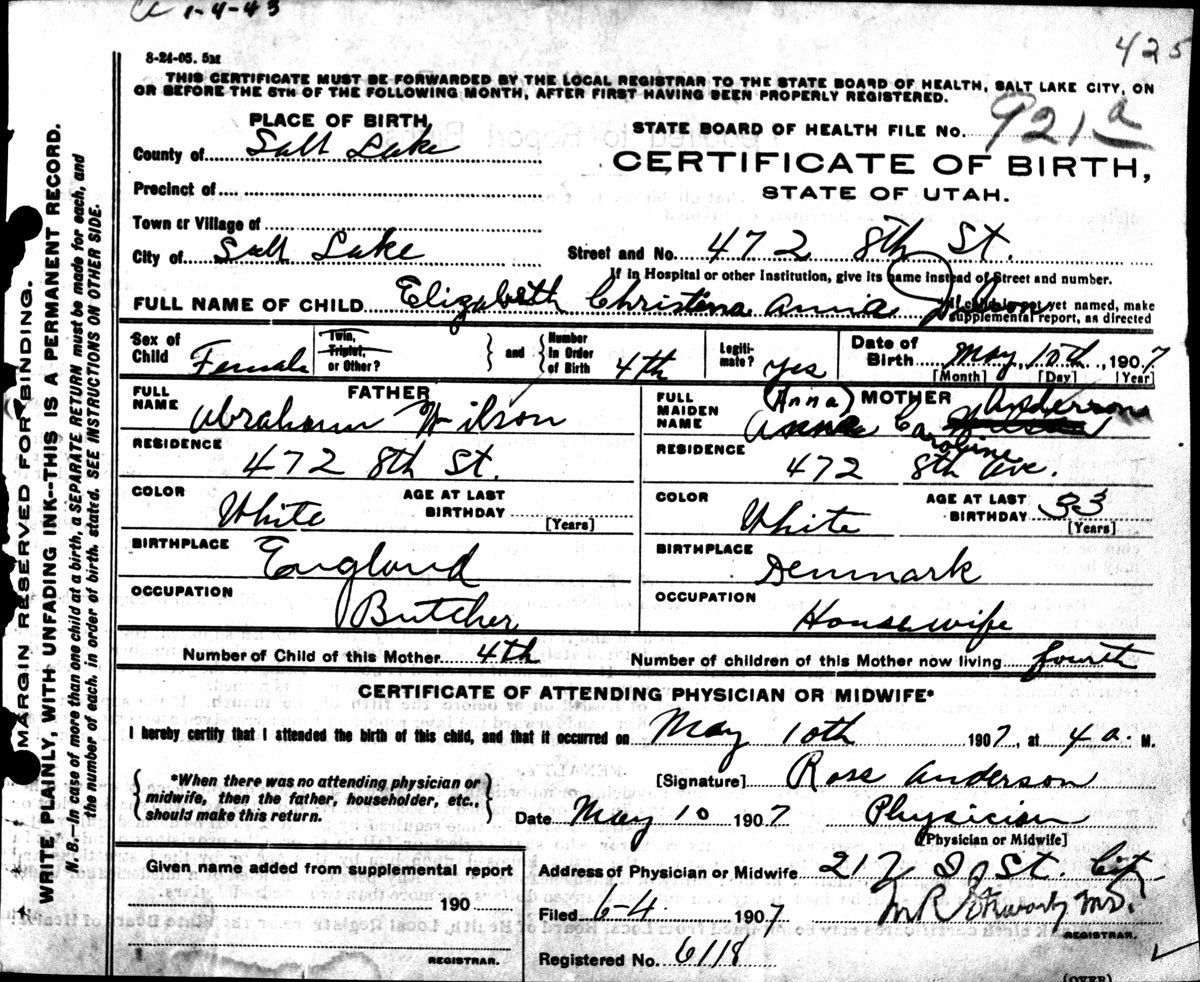 1-4-43
425
8-24-05. 5M
THIS CERTIFICATE MUST BE FORWARDED BY THE LOCAL REGISTRAR TO THE STATE BOARD OF HEALTH, SALT LAKE CITY, ON
OR BEFORE THE 5TH OF THE FOLLOWING MONTH, AFTER FIRST HAVING BEEN PROPERLY REGISTERED.
PLACE OF BIRTH,
STATE BOARD OF HEALTH FILE No. 921 a
County of Salt Lake
CERTIFICATE OF BIRTH,
Precinct of
STATE OF UTAH.
Town or Village of
City of Salt Lake
Street and No. 472 8th St.
If in Hospital or other Institution, give its name instead of Street and number.
FULL NAME OF CHILD Elizabeth Christina Anna
If child is not yet named, make
supplemental report, as directed
Sex of Child Female
Twin, Triplet, or Other?
and Number In Order of Birth 4th
Legitimate? Yes
Date of Birth May, 10th, 1907
[Month] [Day] [Year]
FATHER
FULL NAME Abraham Wilson
RESIDENCE 472 8th St.
COLOR White
AGE AT LAST BIRTHDAY [Years]
BIRTHPLACE England
OCCUPATION Butcher
MOTHER
FULL MAIDEN NAME (Anna) Anna Caroline Anderson
RESIDENCE 472 8th Ave.
COLOR White
AGE AT LAST BIRTHDAY 33 [Years]
BIRTHPLACE Denmark
OCCUPATION Housewife
Number of Child of this Mother 4th
Number of children of this Mother now living fourth
CERTIFICATE OF ATTENDING PHYSICIAN OR MIDWIFE*
I hereby certify that I attended the birth of this child, and that it occurred on May 10th 1907, at 4 a. M.
*When there was no attending physician or
midwife, then the father, householder, etc.,
should make this return.
[Signature] Ross Anderson
Date May 10 1907 Physician
(Physician or Midwife]
Given name added from supplemental report
190
REGISTRAR.
Address of Physician or Midwife 217 D St. City
Filed 6-4 1907
REGISTRAR.
Registered No. 6118
(OVER)
MARGIN RESERVED FOR BINDING.
WRITE PLAINLY, WITH UNFADING INK--THIS IS A PERMANENT RECORD.
N. B.--In case of more than one child at a birth, a SEPARATE RETURN must be made for each, and
the number of each, in order of birth, stated. SEE INSTRUCTIONS ON OTHER SIDE.